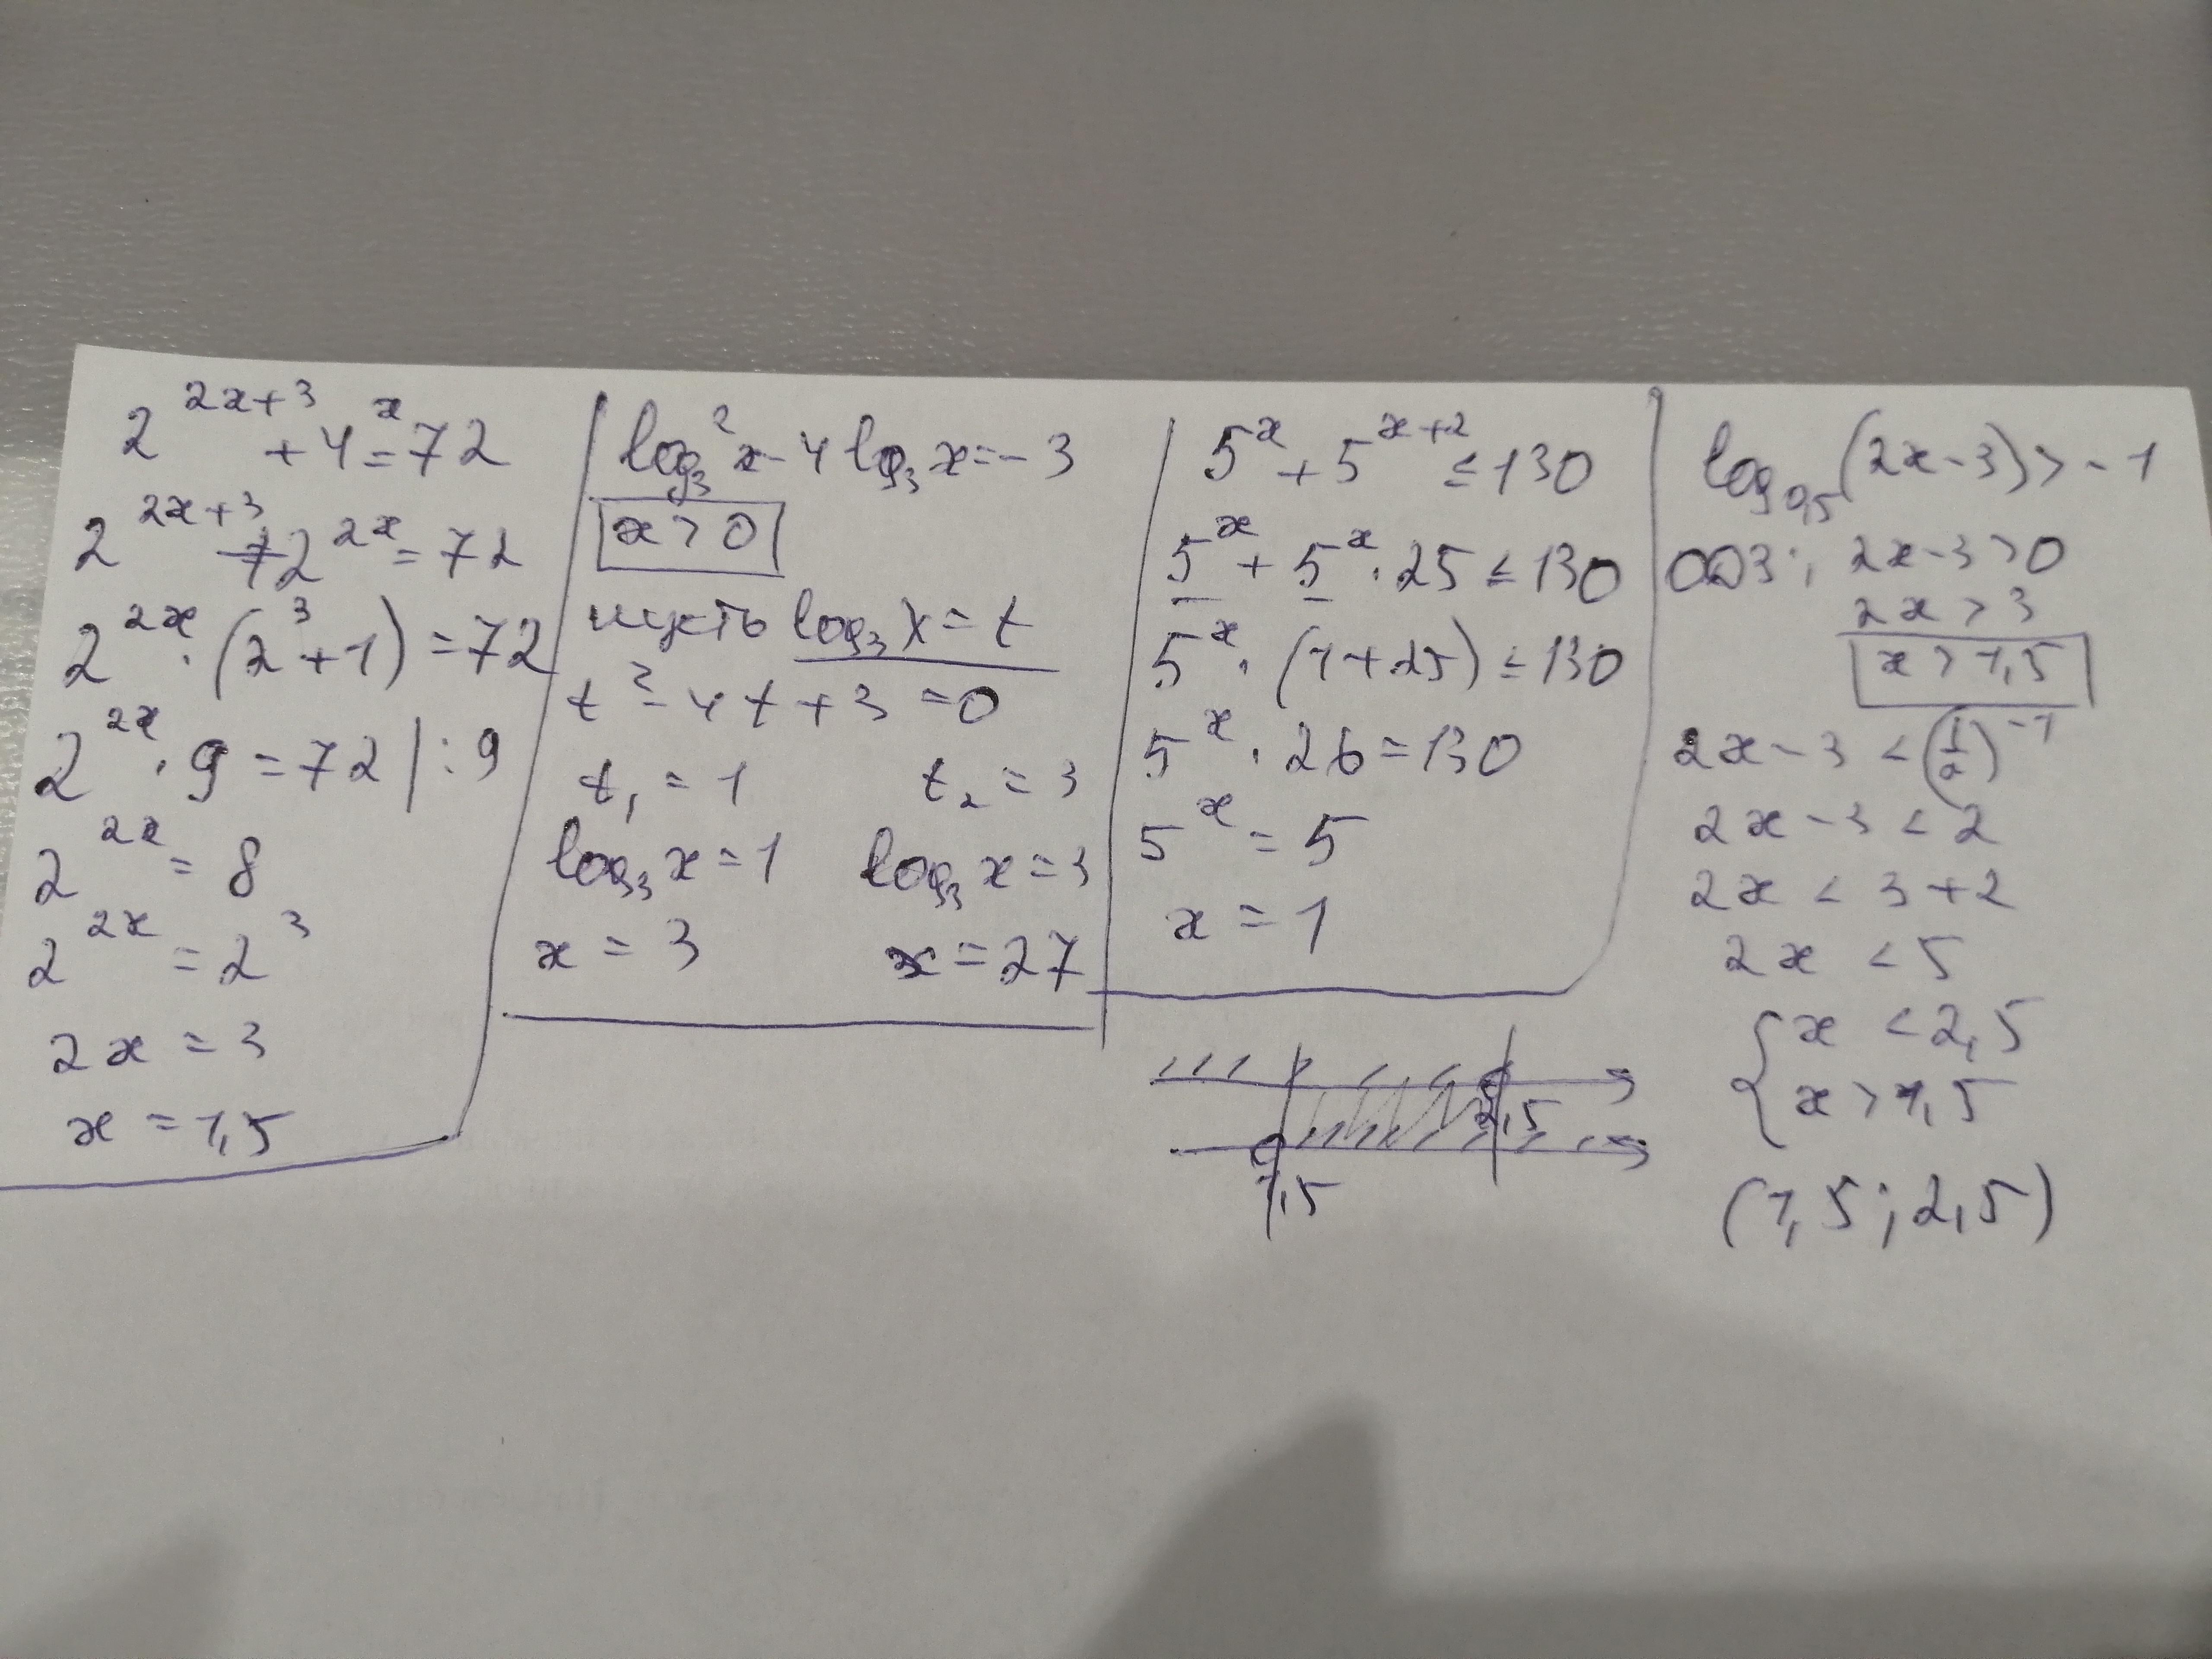 2^{2x+3} + 4^x = 72
2^{2x+3} + 2^{2x} = 72
2^{2x} · (2^3 + 1) = 72
2^{2x} · 9 = 72 | : 9
2^{2x} = 8
2^{2x} = 2^3
2x = 3
x = 1,5
log_3^2 x - 4 log_3 x = -3
x > 0
пусть log_3 x = t
t^2 - 4t + 3 = 0
t_1 = 1 t_2 = 3
log_3 x = 1 log_3 x = 3
x = 3 x = 27
5^x + 5^{x+2} ≤ 130
5^x + 5^x · 25 ≤ 130
5^x · (1 + 25) ≤ 130
5^x · 26 = 130
5^x = 5
x = 1
2,5
1,5
log_{0,5} (2x - 3) > -1
ОДЗ: 2x - 3 > 0
2x > 3
x > 1,5
2x - 3 < (1/2)^{-1}
2x - 3 < 2
2x < 3 + 2
2x < 5
{ x < 2,5
x > 1,5
(1,5; 2,5)